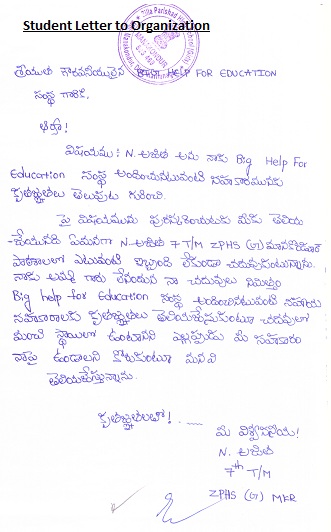 Student Letter to Organization
Zilla Parishad
శ్రీయుత గౌరవనీయులైన BIG HELP FOR EDUCATION
సంస్థ గారికి,
ఆర్యా!
విషయము : N. అఖిల అను నాకు Big Help For
Education సంస్థ అందించినటువంటి సహకారమునకు
కృతజ్ఞతలు తెలుపుట గురించి.
పై విషయమును పురస్కరించుకుని మీకు తెలియ
-చేయునది ఏమనగా N. అఖిల 7 T/M ZPHS (G)
పాఠశాలలో ఎటువంటి ఇబ్బంది లేకుండా చదువుకుంటున్నాను.
నాకు అమ్మ గారు లేనందున నా చదువుల నిమిత్తం
Big help for Education సంస్థ అందించినటువంటి సహాయ
సహకారాలకు కృతజ్ఞతలు తెలియజేసుకుంటూ చదువులో
మంచి స్థాయిలో ఉంటానని ఎల్లప్పుడు మీ సహకారం
నాపై ఉండాలని కోరుకుంటూ మనవి
తెలియజేస్తున్నాను.
కృతజ్ఞతలతో! .....
మీ విశ్వసనీయ!
N. అఖిల
7th T/M
ZPHS (G) MKR